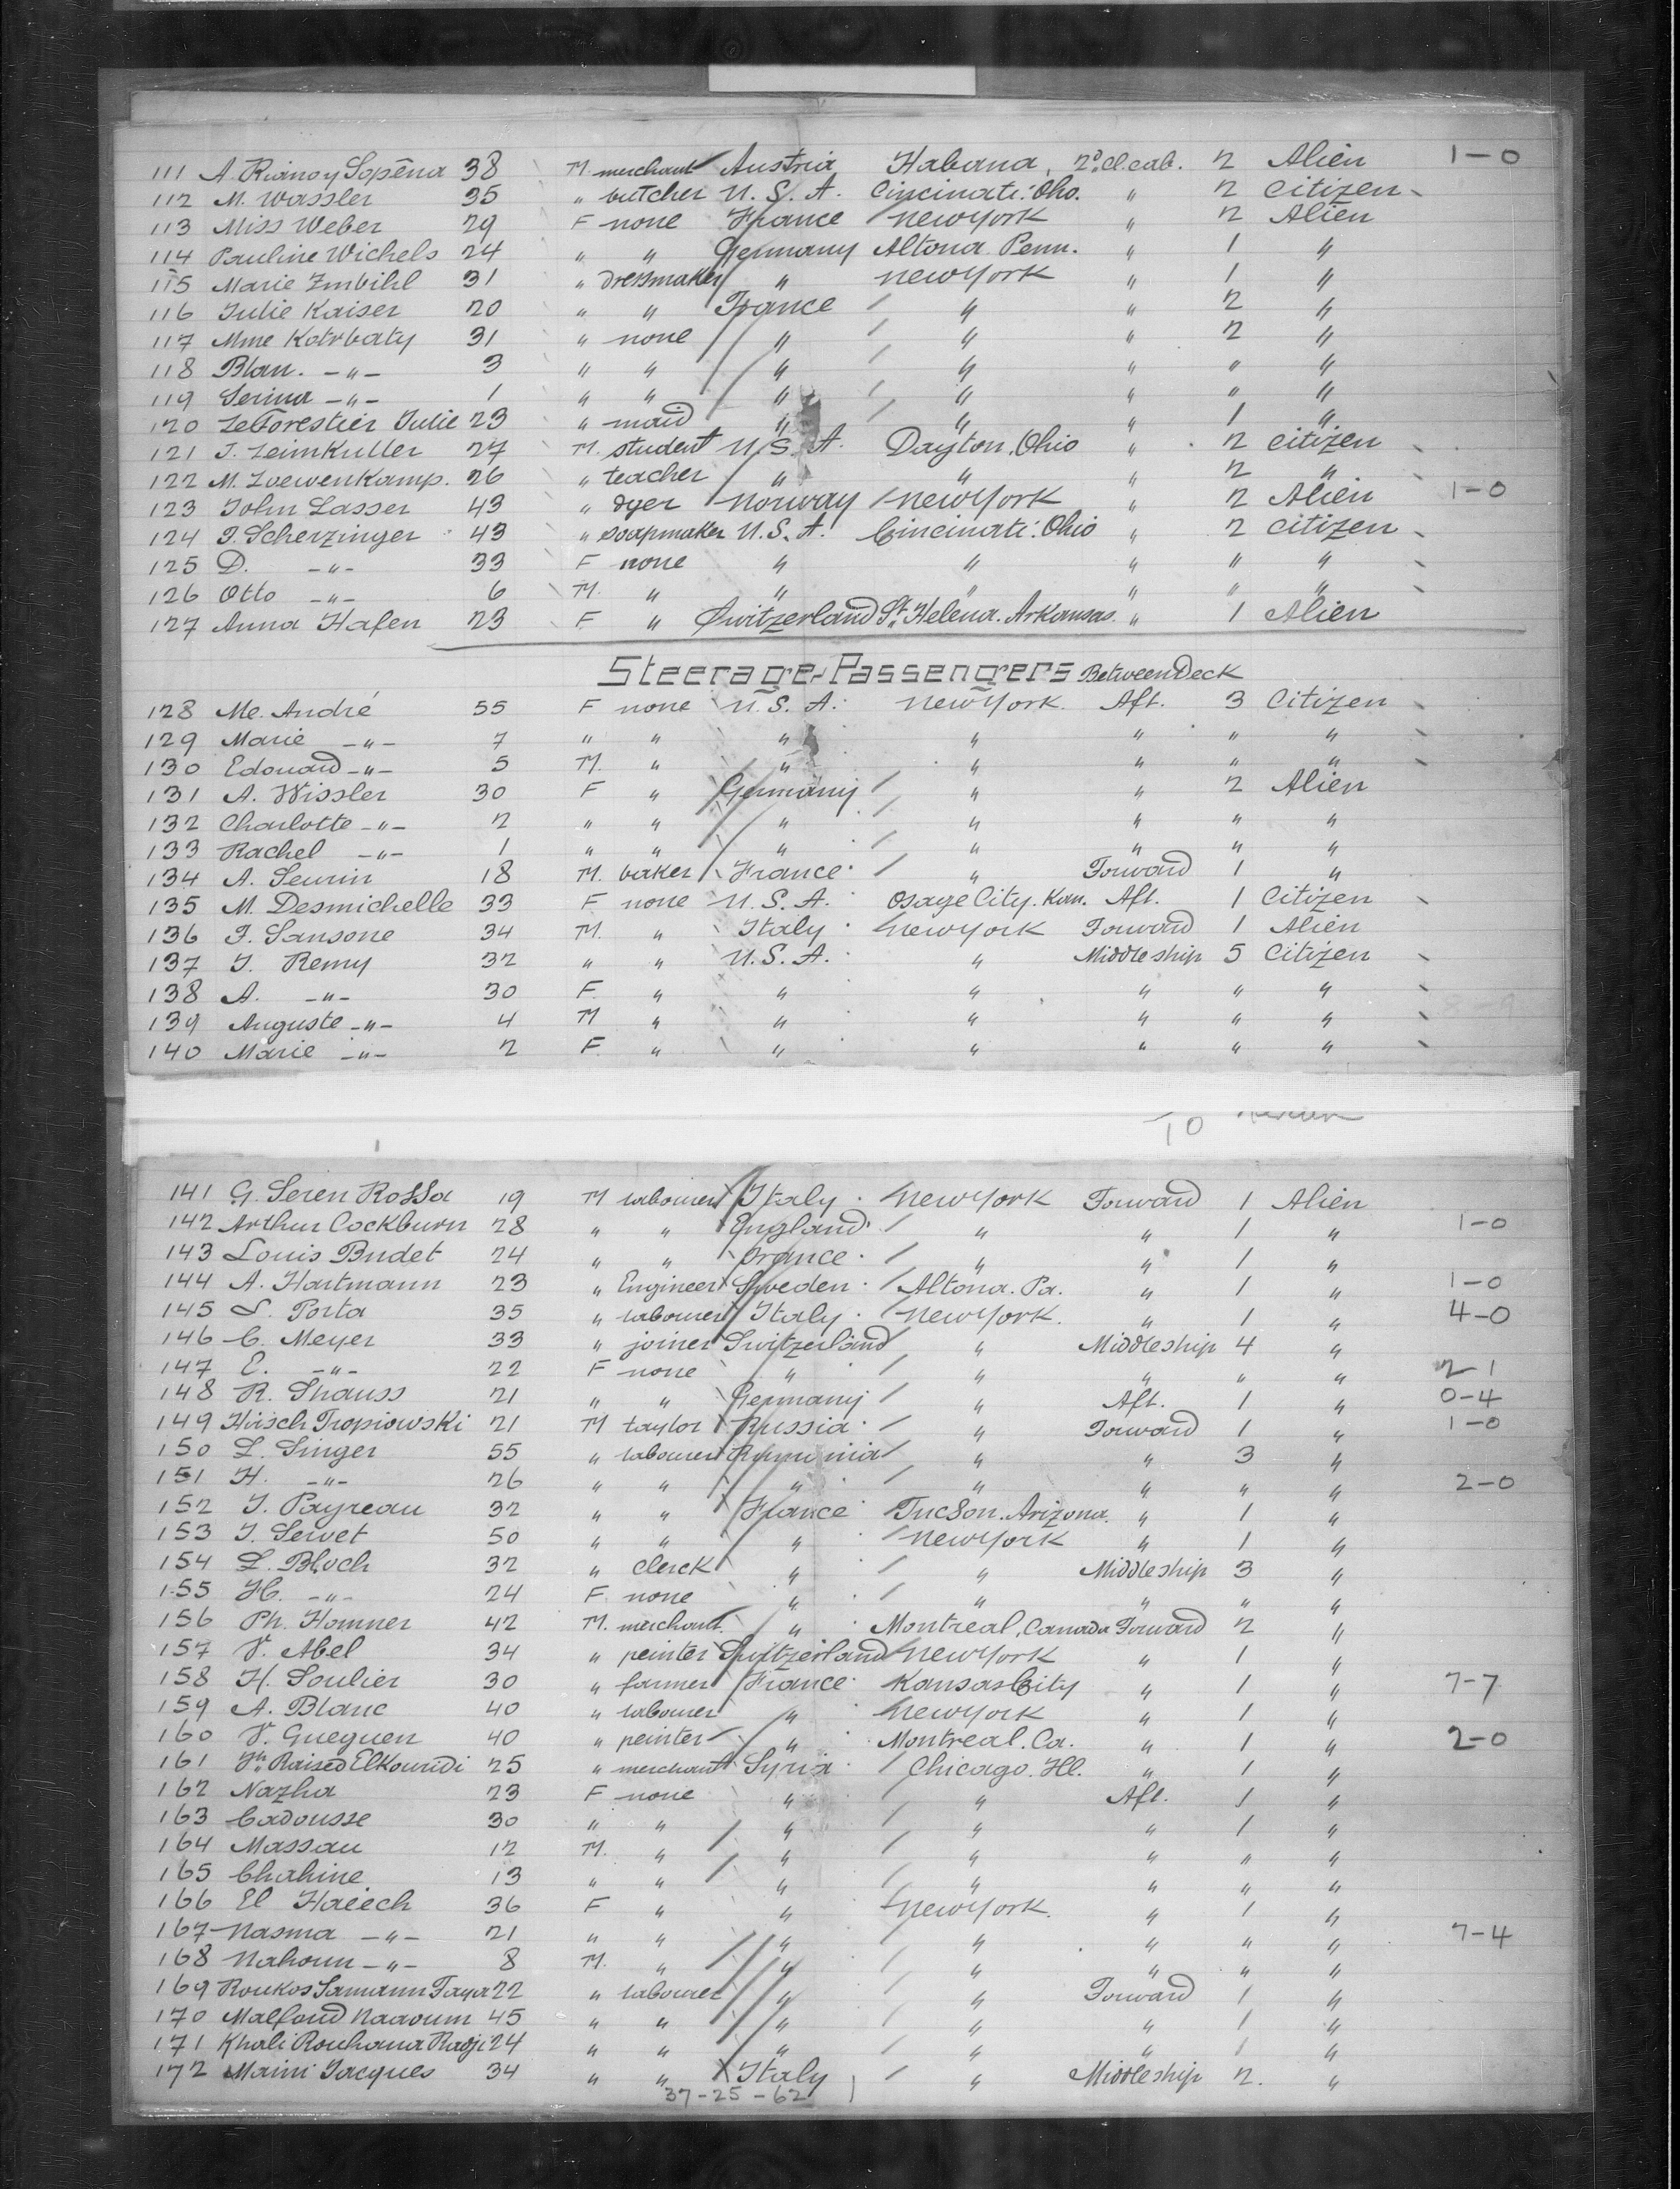 111 A. Rianoy Sopēna 38 M. merchant Austria Habana, 2ᵈ.cl.cab. 2 Alien 1-0
112 M. Wassler 35 " butcher U.S.A. Cincinati: Oho. " 2 citizen
113 Miss Weber 29 F none France New York " 2 Alien
114 Pauline Wichels 24 " " Germany Altona Penn. " 1 "
115 Marie Zmbihl 31 " dressmaker " New York " 1 "
116 Julie Kaiser 20 " " France " " 2 "
117 Mme Kotrbaty 31 " none " " " 2 "
118 Blan. -"- 3 " " " " " " "
119 Serina -"- 1 " " " " " " "
120 LeForestier Julie 23 " maid " " " 1 "
121 J. Leimkuller 27 M. student U.S.A. Dayton. Ohio " 2 citizen
122 M. Loewenkamp. 26 " teacher " " " 2 "
123 John Lasser 43 " dyer Norway New York " 2 Alien 1-0
124 J. Scherzinger 43 " soapmaker U.S.A. Cincinati: Ohio " 2 citizen
125 D. -"- 33 F none " " " " "
126 Otto -"- 6 M. " " " " " "
127 Anna Hafen 23 F " Switzerland St. Helena. Arkansas. " 1 Alien
Steerage-Passengers Between Deck
128 Me. André 55 F none U.S.A. New York. Aft. 3 Citizen
129 Marie -"- 7 " " " " " " "
130 Edouard -"- 5 M. " " " " " "
131 A. Wissler 30 F " Germany " " 2 Alien
132 Charlotte -"- 2 " " " " " " "
133 Rachel -"- 1 " " " " " " "
134 A. Seurin 18 M. baker France " Forward 1 "
135 M. Desmichelle 33 F none U.S.A. Osage City. Kan. Aft. 1 Citizen
136 F. Sansone 34 M. " Italy New York Forward 1 Alien
137 J. Remy 32 " " U.S.A. " Middleship 5 Citizen
138 A. -"- 30 F. " " " " " "
139 Auguste -"- 4 M " " " " " "
140 Marie -"- 2 F. " " " " " "
To
141 G. Seren Rossa 19 M labourer Italy New York Forward 1 Alien
142 Arthur Cockburn 28 " " England " " 1 " 1-0
143 Louis Budet 24 " " France " " 1 "
144 A. Hartmann 23 " Engineer Sweden Altona. Pa. " 1 " 1-0
145 L. Porta 35 " labourer Italy New York. " 1 " 4-0
146 C. Meyer 33 " joiner Switzerland " Middleship 4 "
147 E. -"- 22 F none " " " " " 2-1
148 R. Shauss 21 " " Germany " Aft. 1 " 0-4
149 Hirsch Tropiowski 21 M taylor Russia " Forward 1 " 1-0
150 L. Singer 55 " labourer Rumunia " " 3 "
151 H. -"- 26 " " " " " " " 2-0
152 J. Payreau 32 " " France Tucson. Arizona. " 1 "
153 J. Servet 50 " " " New York " 1 "
154 L. Bloch 32 " clerck " " Middleship 3 "
155 H. -"- 24 F none " " " " "
156 Ph. Homner 42 M. merchant. " Montreal, Canada Forward 2 "
157 V. Abel 34 " peinter Switzerland New York " 1 "
158 H. Soulier 30 " farmer France Kansas City " 1 " 7-7
159 A. Blanc 40 " labourer " New York " 1 "
160 V. Gueguen 40 " peinter " Montreal. Ca. " 1 " 2-0
161 Raised ElKouridi 25 " merchant Syria Chicago. Ill. " 1 "
162 Nazha 23 F none " " Aft. 1 "
163 Cadousse 30 " " " " " 1 "
164 Massau 12 M. " " " " " "
165 Chahine 13 " " " " " " "
166 El Haiech 36 F " " New York. " 1 "
167 Nasma -"- 21 " " " " " " " 7-4
168 Nahoun -"- 8 M. " " " " " "
169 Roukos Samann Faya 22 " labourer " " Forward 1 "
170 Malfoud Naaoum 45 " " " " " 1 "
171 Khali Rouhana Radji 24 " " " " " 1 "
172 Maini Jacques 34 " " Italy " Middleship 2. "
37-25-62